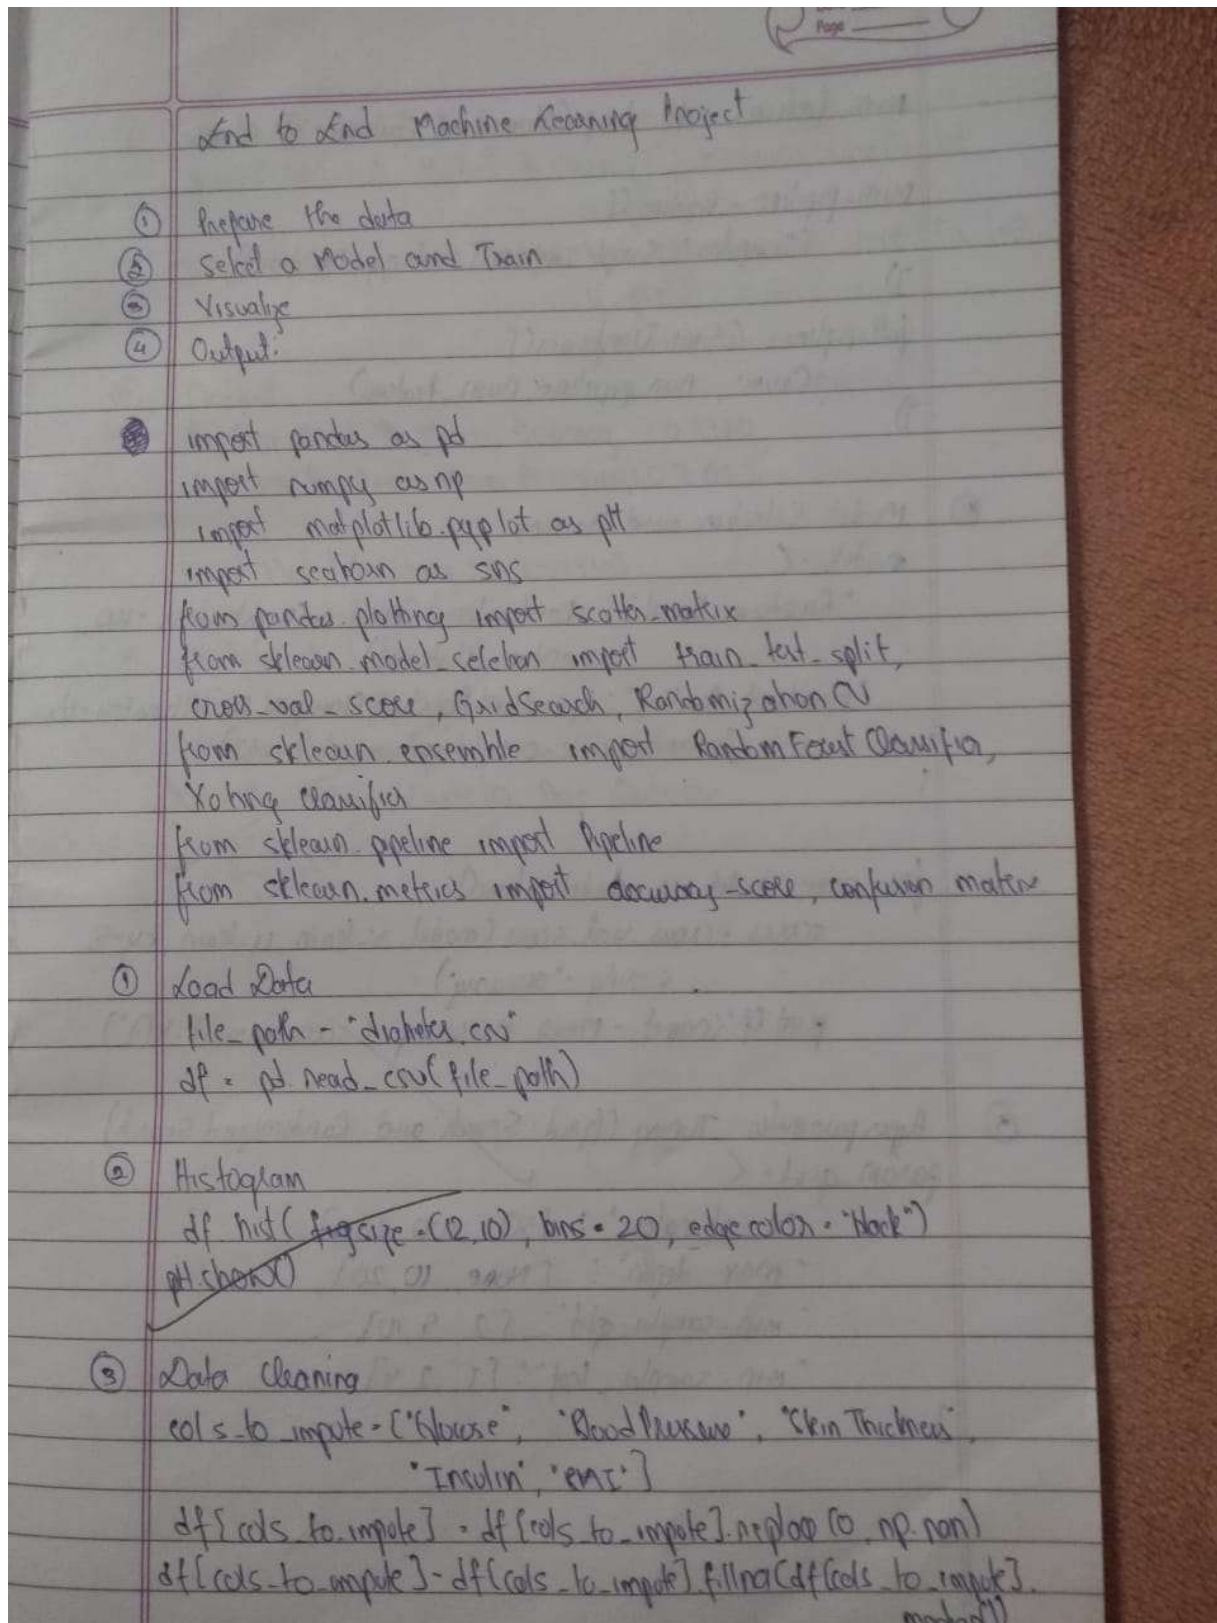 Page
End to End Machine Learning Project
① Prepare the data
② Select a Model and Train
③ Visualize
④ Output:
import pandas as pd
import numpy as np
import matplotlib.pyplot as plt
import seaborn as sns
from pandas.plotting import scatter_matrix
from sklearn.model_selection import train_test_split,
cross_val_score, GridSearch, RandomizationCV
from sklearn.ensemble import RandomForestClassifier,
Voting Classifier
from sklearn.pipeline import Pipeline
from sklearn.metrics import accuracy_score, confusion matrix
① Load Data
file_path = "diabetes.csv"
df = pd.read_csv(file_path)
② Histogram
df.hist(figsize=(12,10), bins=20, edgecolor="black")
plt.show()
③ Data Cleaning
cols_to_impute = ["Glucose", "BloodPressure", "SkinThickness",
"Insulin", "BMI"]
df[cols_to_impute] = df[cols_to_impute].replace(0, np.nan)
df[cols_to_impute] = df[cols_to_impute].fillna(df[cols_to_impute].
median())